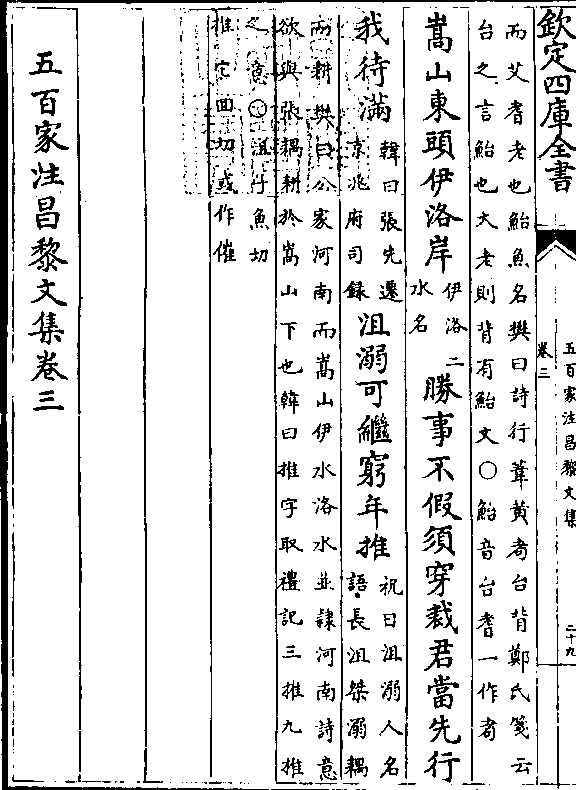 欽定四庫全書
卷三
五百家注昌黎文集
二十九
而艾耆老也鮐魚名樊曰詩行葦黃耇台背鄭氏箋云
台之言鮐也大老則背有鮐文〇鮐音台耆一作者
嵩山東頭伊洛岸伊洛二水名勝事不假須穿裁君當先行
我待滿韓曰張先遷京兆府司錄沮溺可繼窮年推祝曰沮溺人名語長沮桀溺耦
而耕樊曰公家河南而嵩山伊水洛水並隷河南詩意
欲與張耦耕於嵩山下也韓曰推字取禮記三推九推
之意〇沮竹魚切
推它回切或作催
五百家注昌黎文集卷三